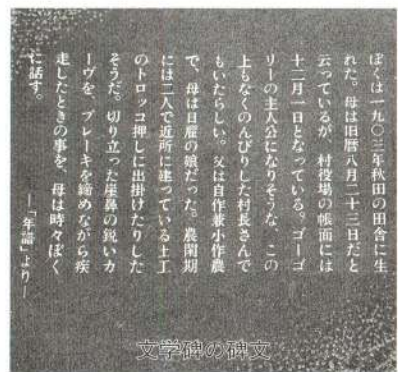 ぼくは一九〇三年秋田の田舎に生
れた。母は旧暦八月二十三日だと
云っているが、村役場の帳面には
十二月一日となっている。ゴーゴ
リーの主人公になりそうな、この
上もなくのんびりした村長さんで
もいたらしい。父は自作兼小作農
で、母は日雇の娘だった。農閑期
には二人で近所に建っている土工
のトロッコ押しに出掛けたりした
そうだ。切り立った崖鼻の鋭いカ
ーヴを、ブレーキを締めながら疾
走したときの事を、母は時々ぼく
に話す。
―「年譜」より―
文学碑の碑文